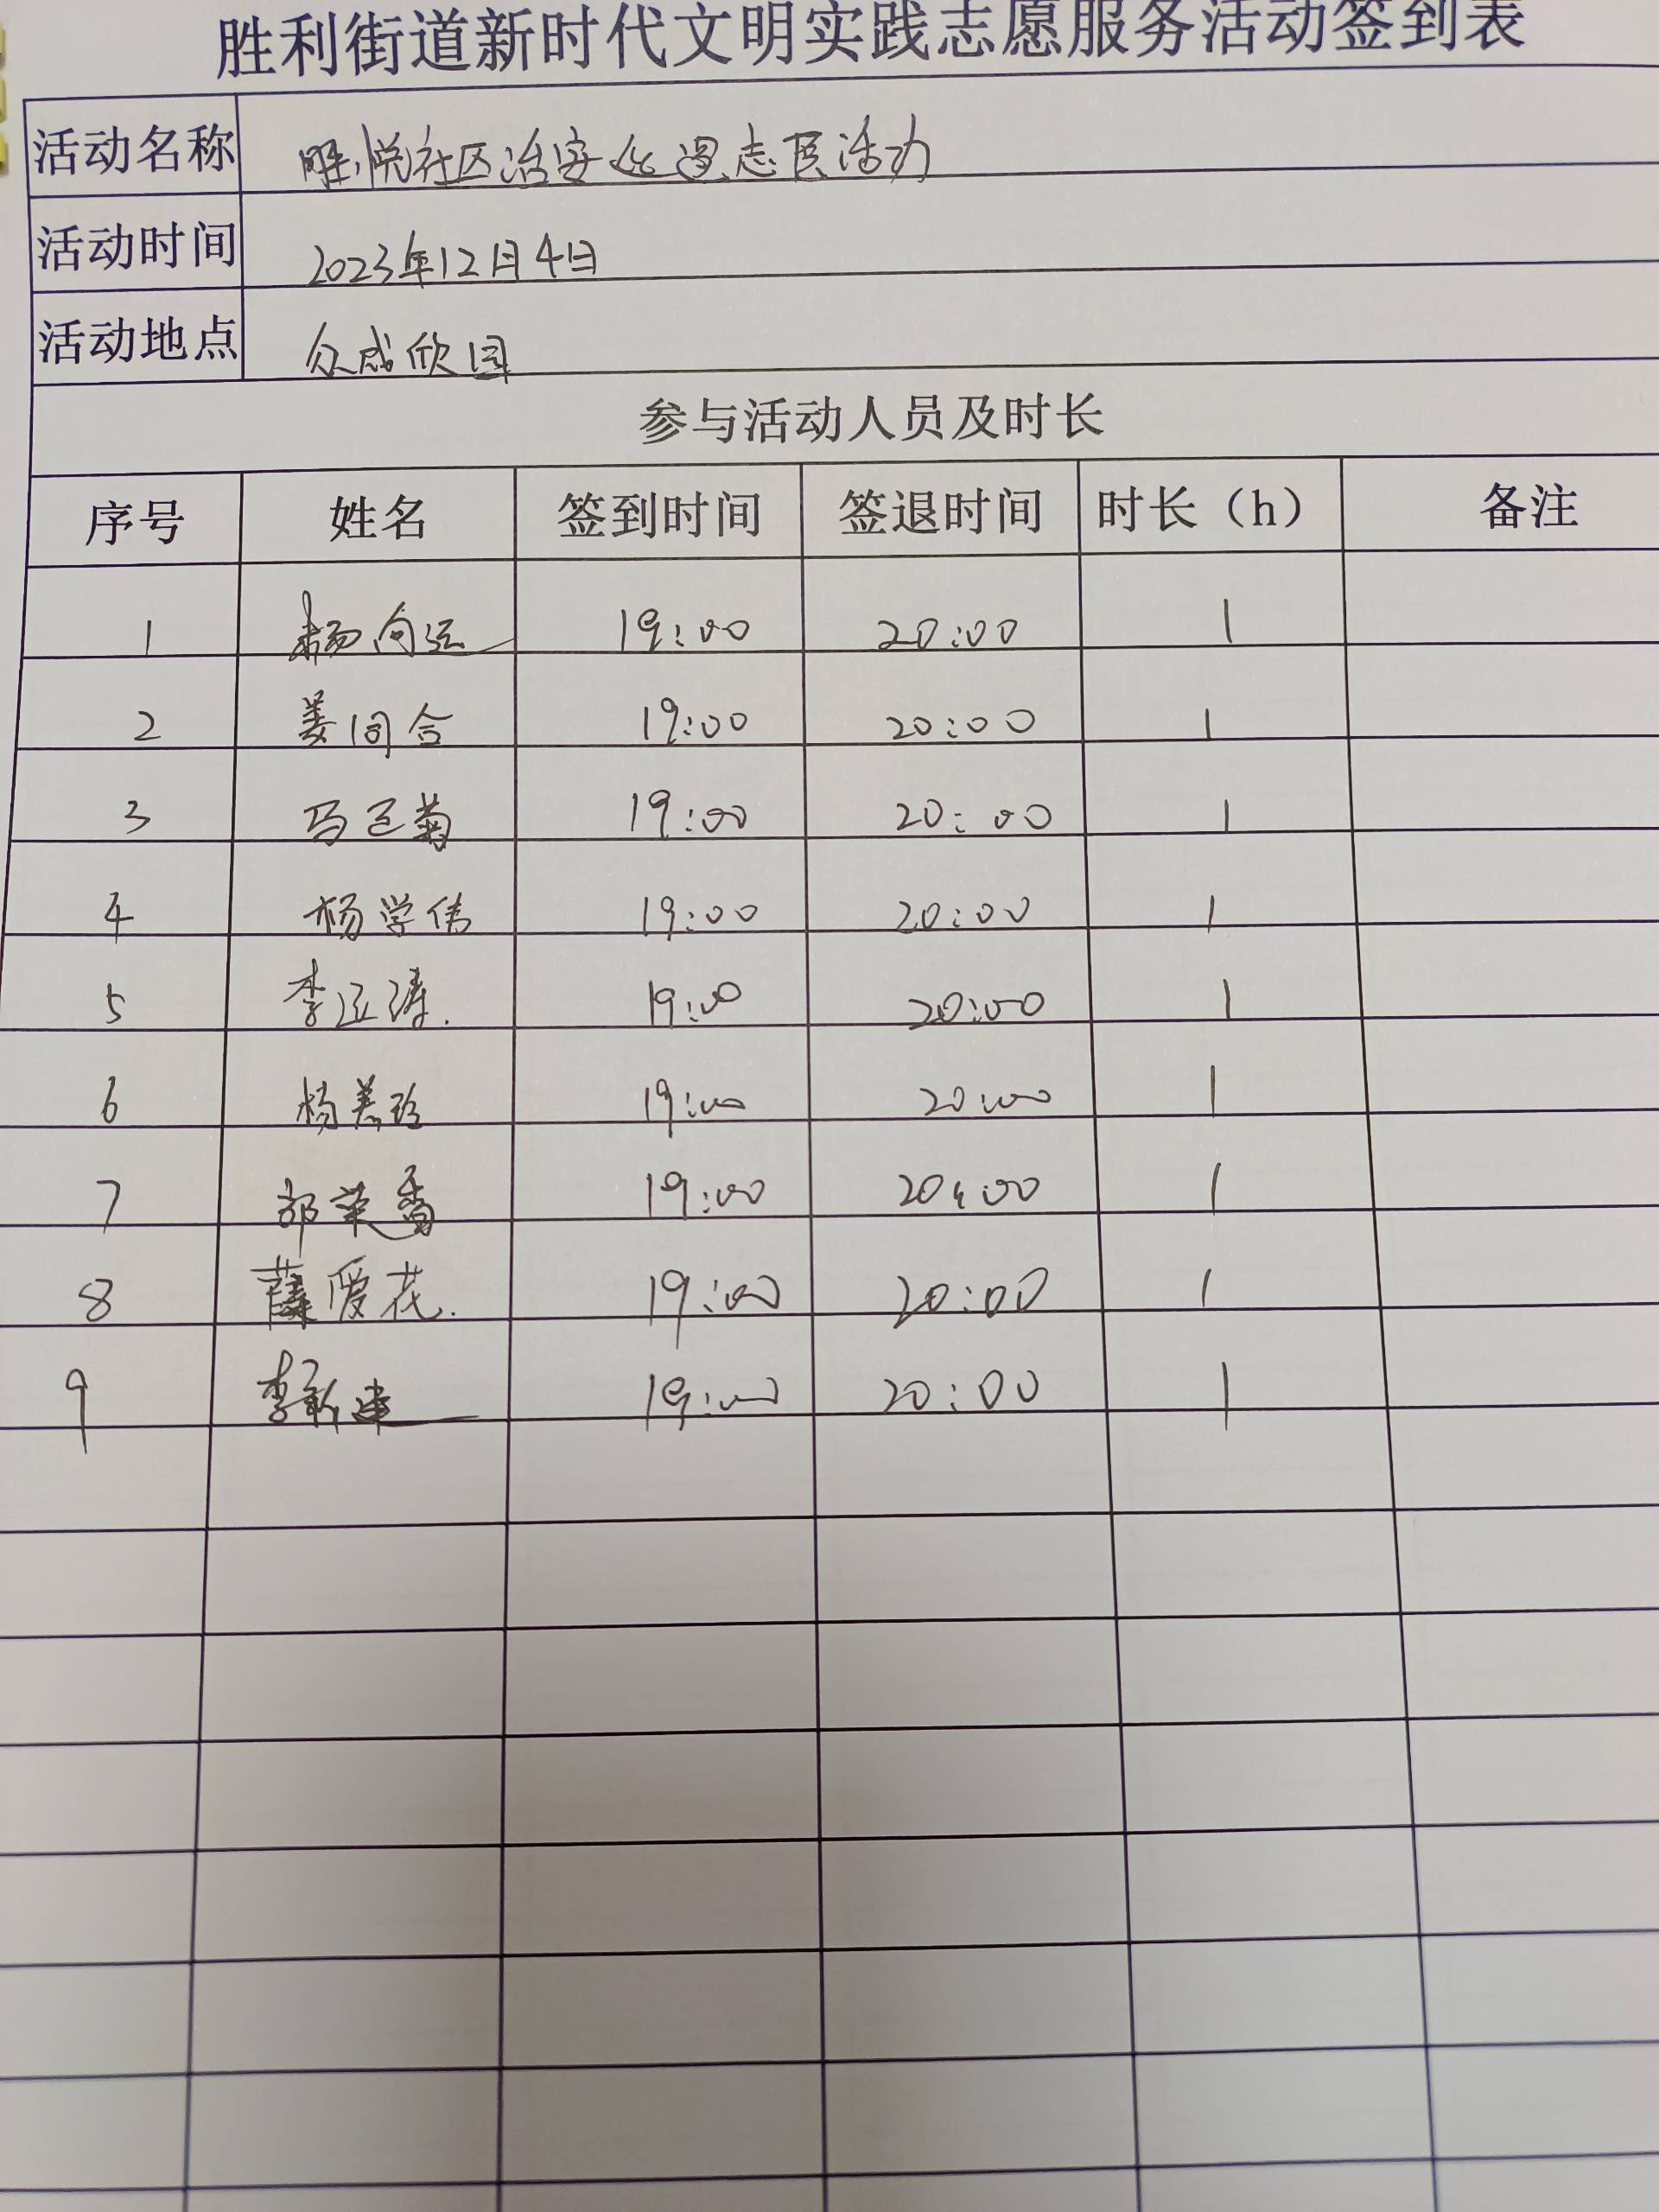 胜利街道新时代文明实践志愿服务活动签到表
活动名称 胜悦社区治安巡逻志愿活动
活动时间 2023年12月4日
活动地点 众成欣园
参与活动人员及时长
序号 姓名 签到时间 签退时间 时长（h） 备注
1 杨向运 19:00 20:00 1
2 姜同合 19:00 20:00 1
3 马巨菊 19:00 20:00 1
4 杨学伟 19:00 20:00 1
5 李运涛 19:00 20:00 1
6 杨美玲 19:00 20:00 1
7 邵荣香 19:00 20:00 1
8 薛爱花 19:00 20:00 1
9 李新建 19:00 20:00 1